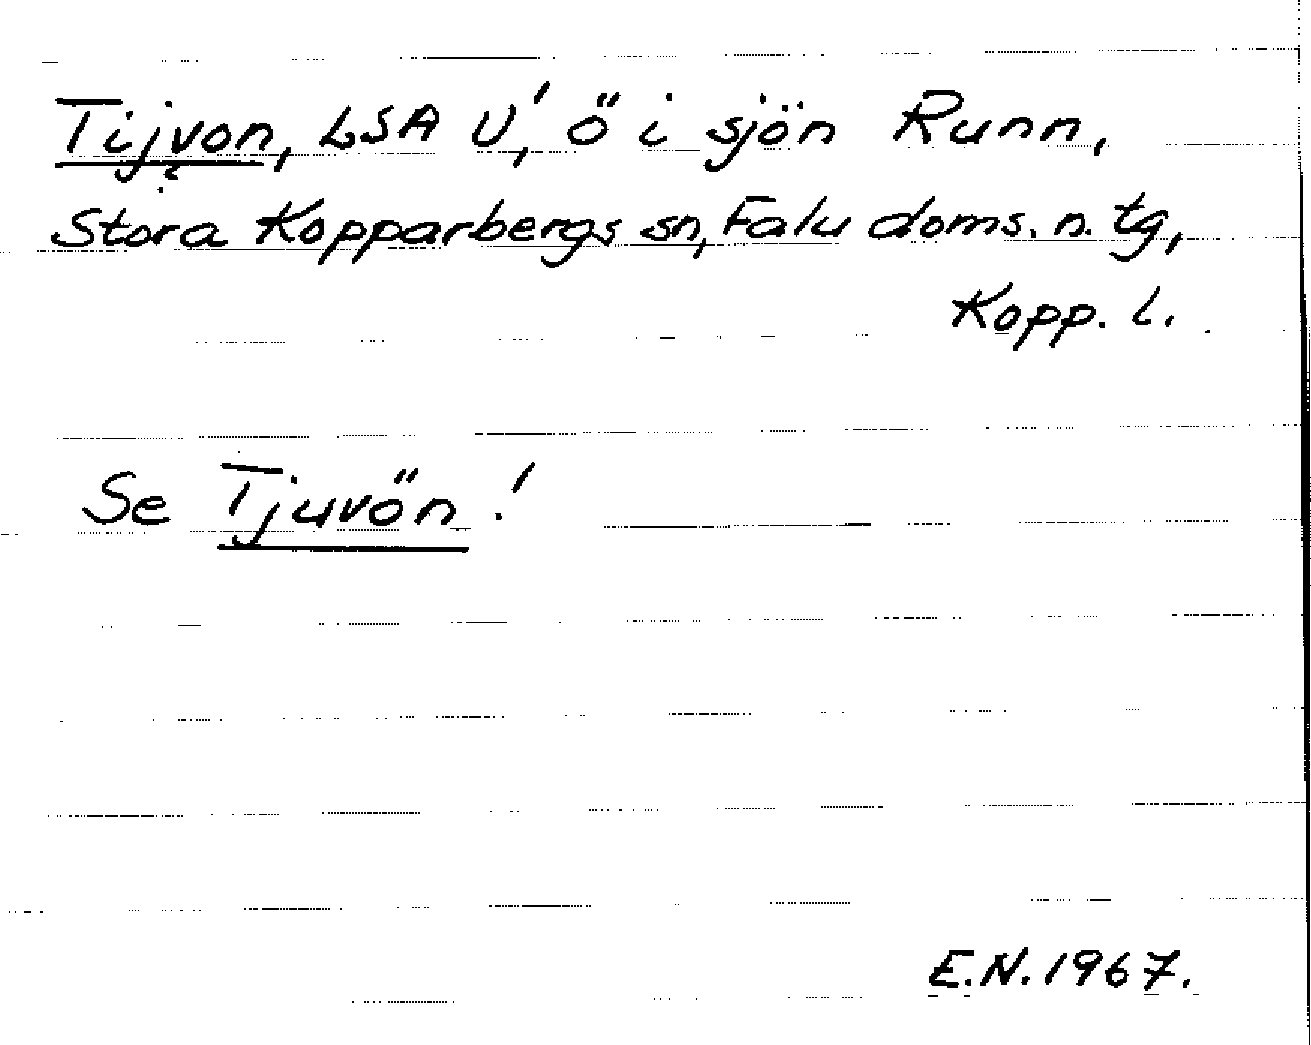 Tijvon, LSA U', ö i sjön Runn,
Stora Kopparbergs sn, Falu doms. n. tg,
Kopp. l.
Se Tjuvön!
E.N. 1967.